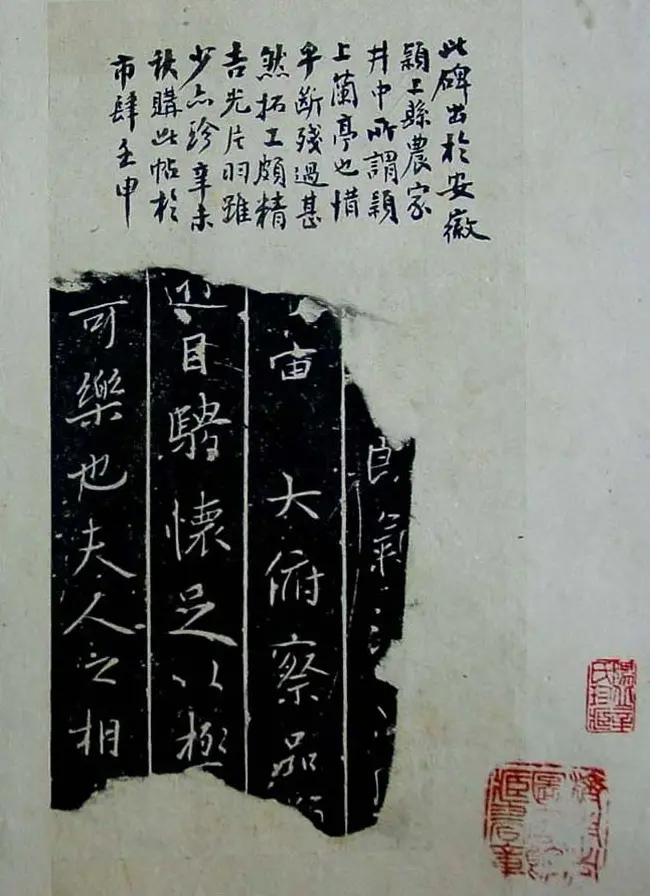 此碑出於安徽
潁上縣農家
井中所謂潁
上蘭亭也惜
乎斷殘過甚
然拓工頗精
吉光片羽雖
少亦珍辛未
秋購此帖於
市肆壬申
朗氣
宙 大俯察品
遊目騁懷足以極
可樂也夫人之相